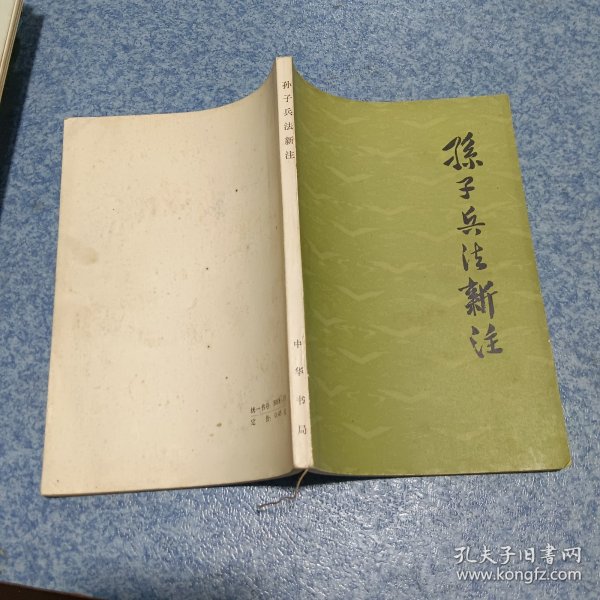 孫子兵法新注
孙子兵法新注
中华书局
统一书号
定价
孔夫子旧书网
www.kongfz.com